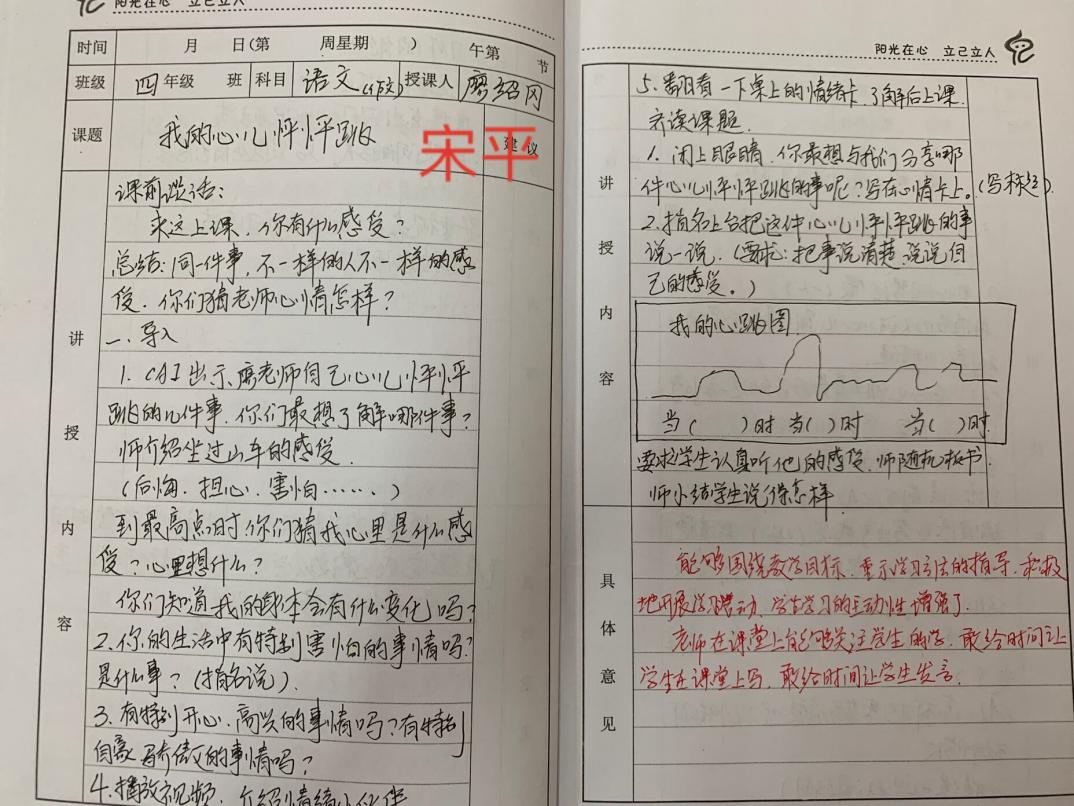 阳光在心 立己立人
时间 月 日(第 周星期 ) 午第 节
班级 四年级 班 科目 语文(作文) 授课人 廖绍冈
课题 我的心儿怦怦跳 宋平 建议
讲授内容
课前谈话：
来这上课，你有什么感受？
总结：同一件事，不一样的人不一样的感
受．你们猜老师心情怎样？
一、导入
1. CAI出示廖老师自己心儿怦怦
跳的几件事．你们最想了解哪件事？
师介绍坐过山车的感受．
(后悔．担心．害怕……)
到最高点时．你们猜我心里是什么感
受？心里想什么？
你们知道我的 会有什么变化吗？
2.你的生活中有特别害怕的事情吗？
是什么事？(指名说)．
3.有特别开心．高兴的事情吗？有特别
自豪骄傲的事情吗？
4.播放视频．介绍情绪小伙伴
阳光在心 立己立人
讲授内容
5.翻看一下桌上的情绪卡．了解后上课．
齐读课题．
1．闭上眼睛．你最想与我们分享哪
件心儿怦怦跳的事呢？写在心情卡上。(写标题)
2.指名上台把这件心儿怦怦跳的事
说一说．(要求：把事说清楚．说说自
己的感受。)
我的心跳图．
当( )时 当( )时 当( )时．
要求学生认真听他的感受．师随机板书．
师小结学生说得怎样．
具体意见
能够围绕教学目标．重示学习方法的指导．积极
地开展学习活动．学生学习的主动性增强了．
老师在课堂上能够关注学生的学．敢给时间让
学生在课堂上写．敢给时间让学生发言．